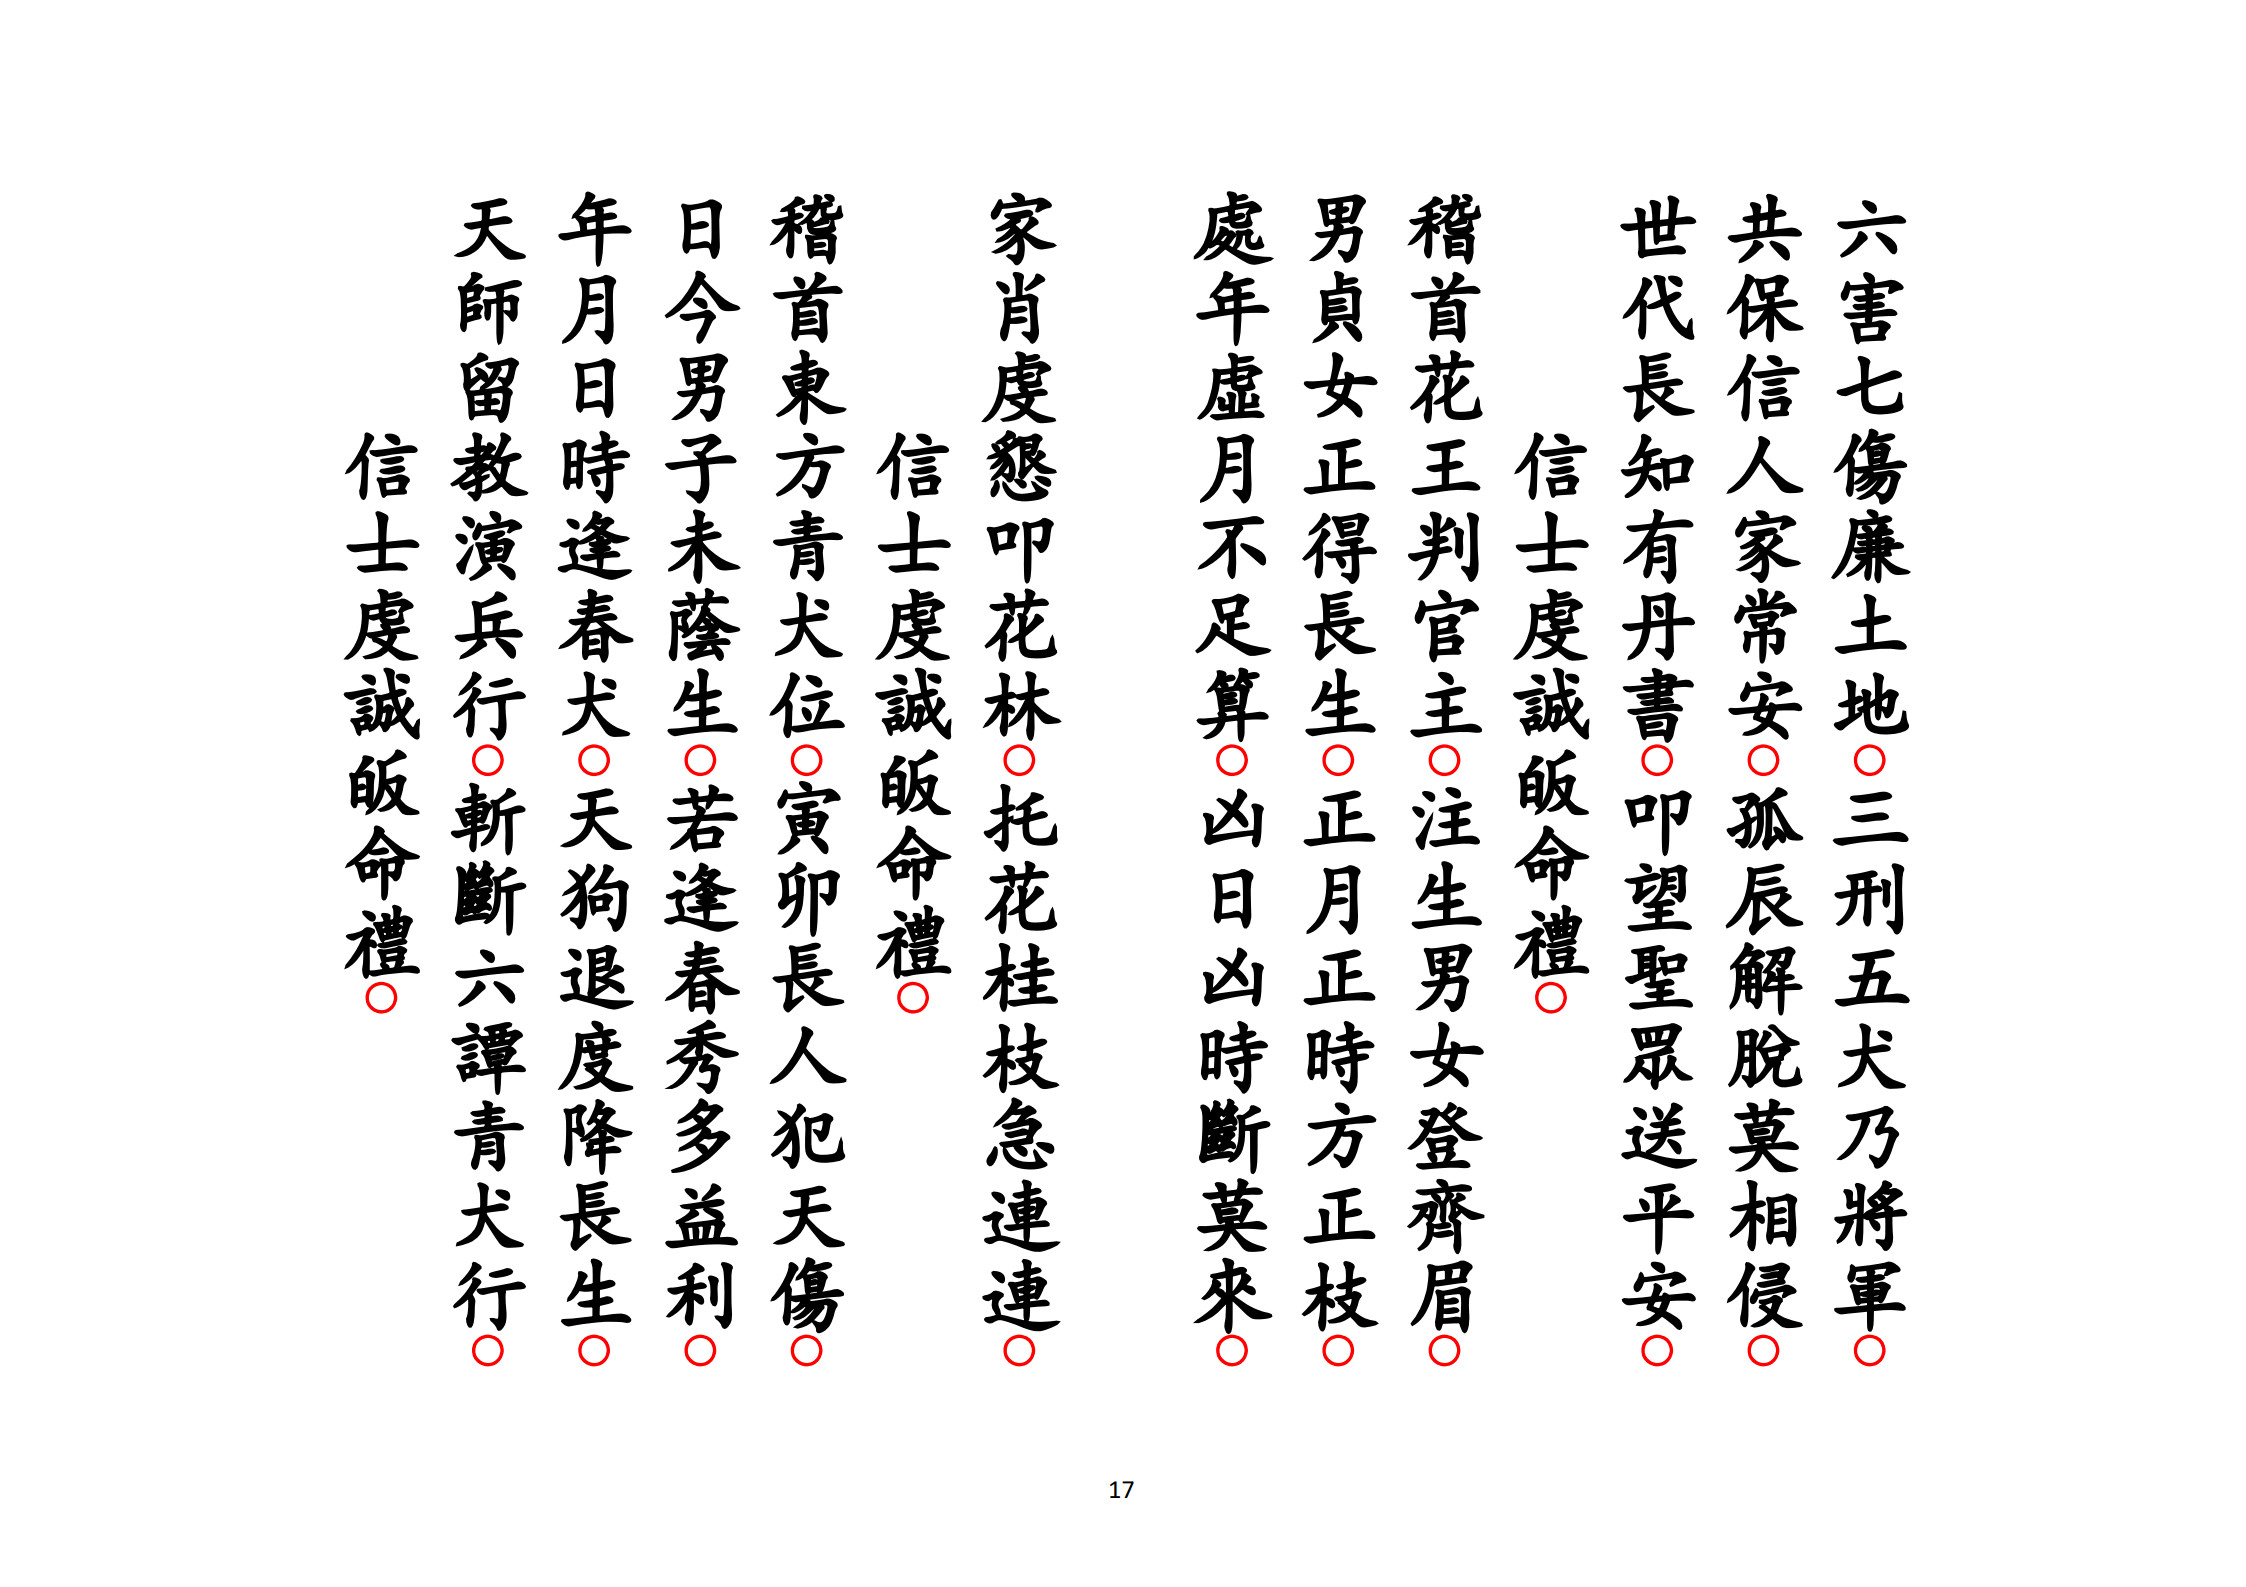 六害七傷廉土地○三刑五犬乃將軍○
共保信人家常安○孤辰解脫莫相侵○
世代長知有丹書○叩望聖眾送平安○
信士虔誠皈命禮○
稽首花王判官主○注生男女登齊眉○
男貞女正得長生○正月正時方正枝○
處年虛月不足算○凶日凶時斷莫來○
家肖虔懇叩花林○托花桂枝急連連○
信士虔誠皈命禮○
稽首東方青犬位○寅卯長人犯天傷○
日今男子未蔭生○若逢春秀多益利○
年月日時逢春犬○天狗退度降長生○
天師留教演兵行○斬斷六譚青犬行○
信士虔誠皈命禮○
17